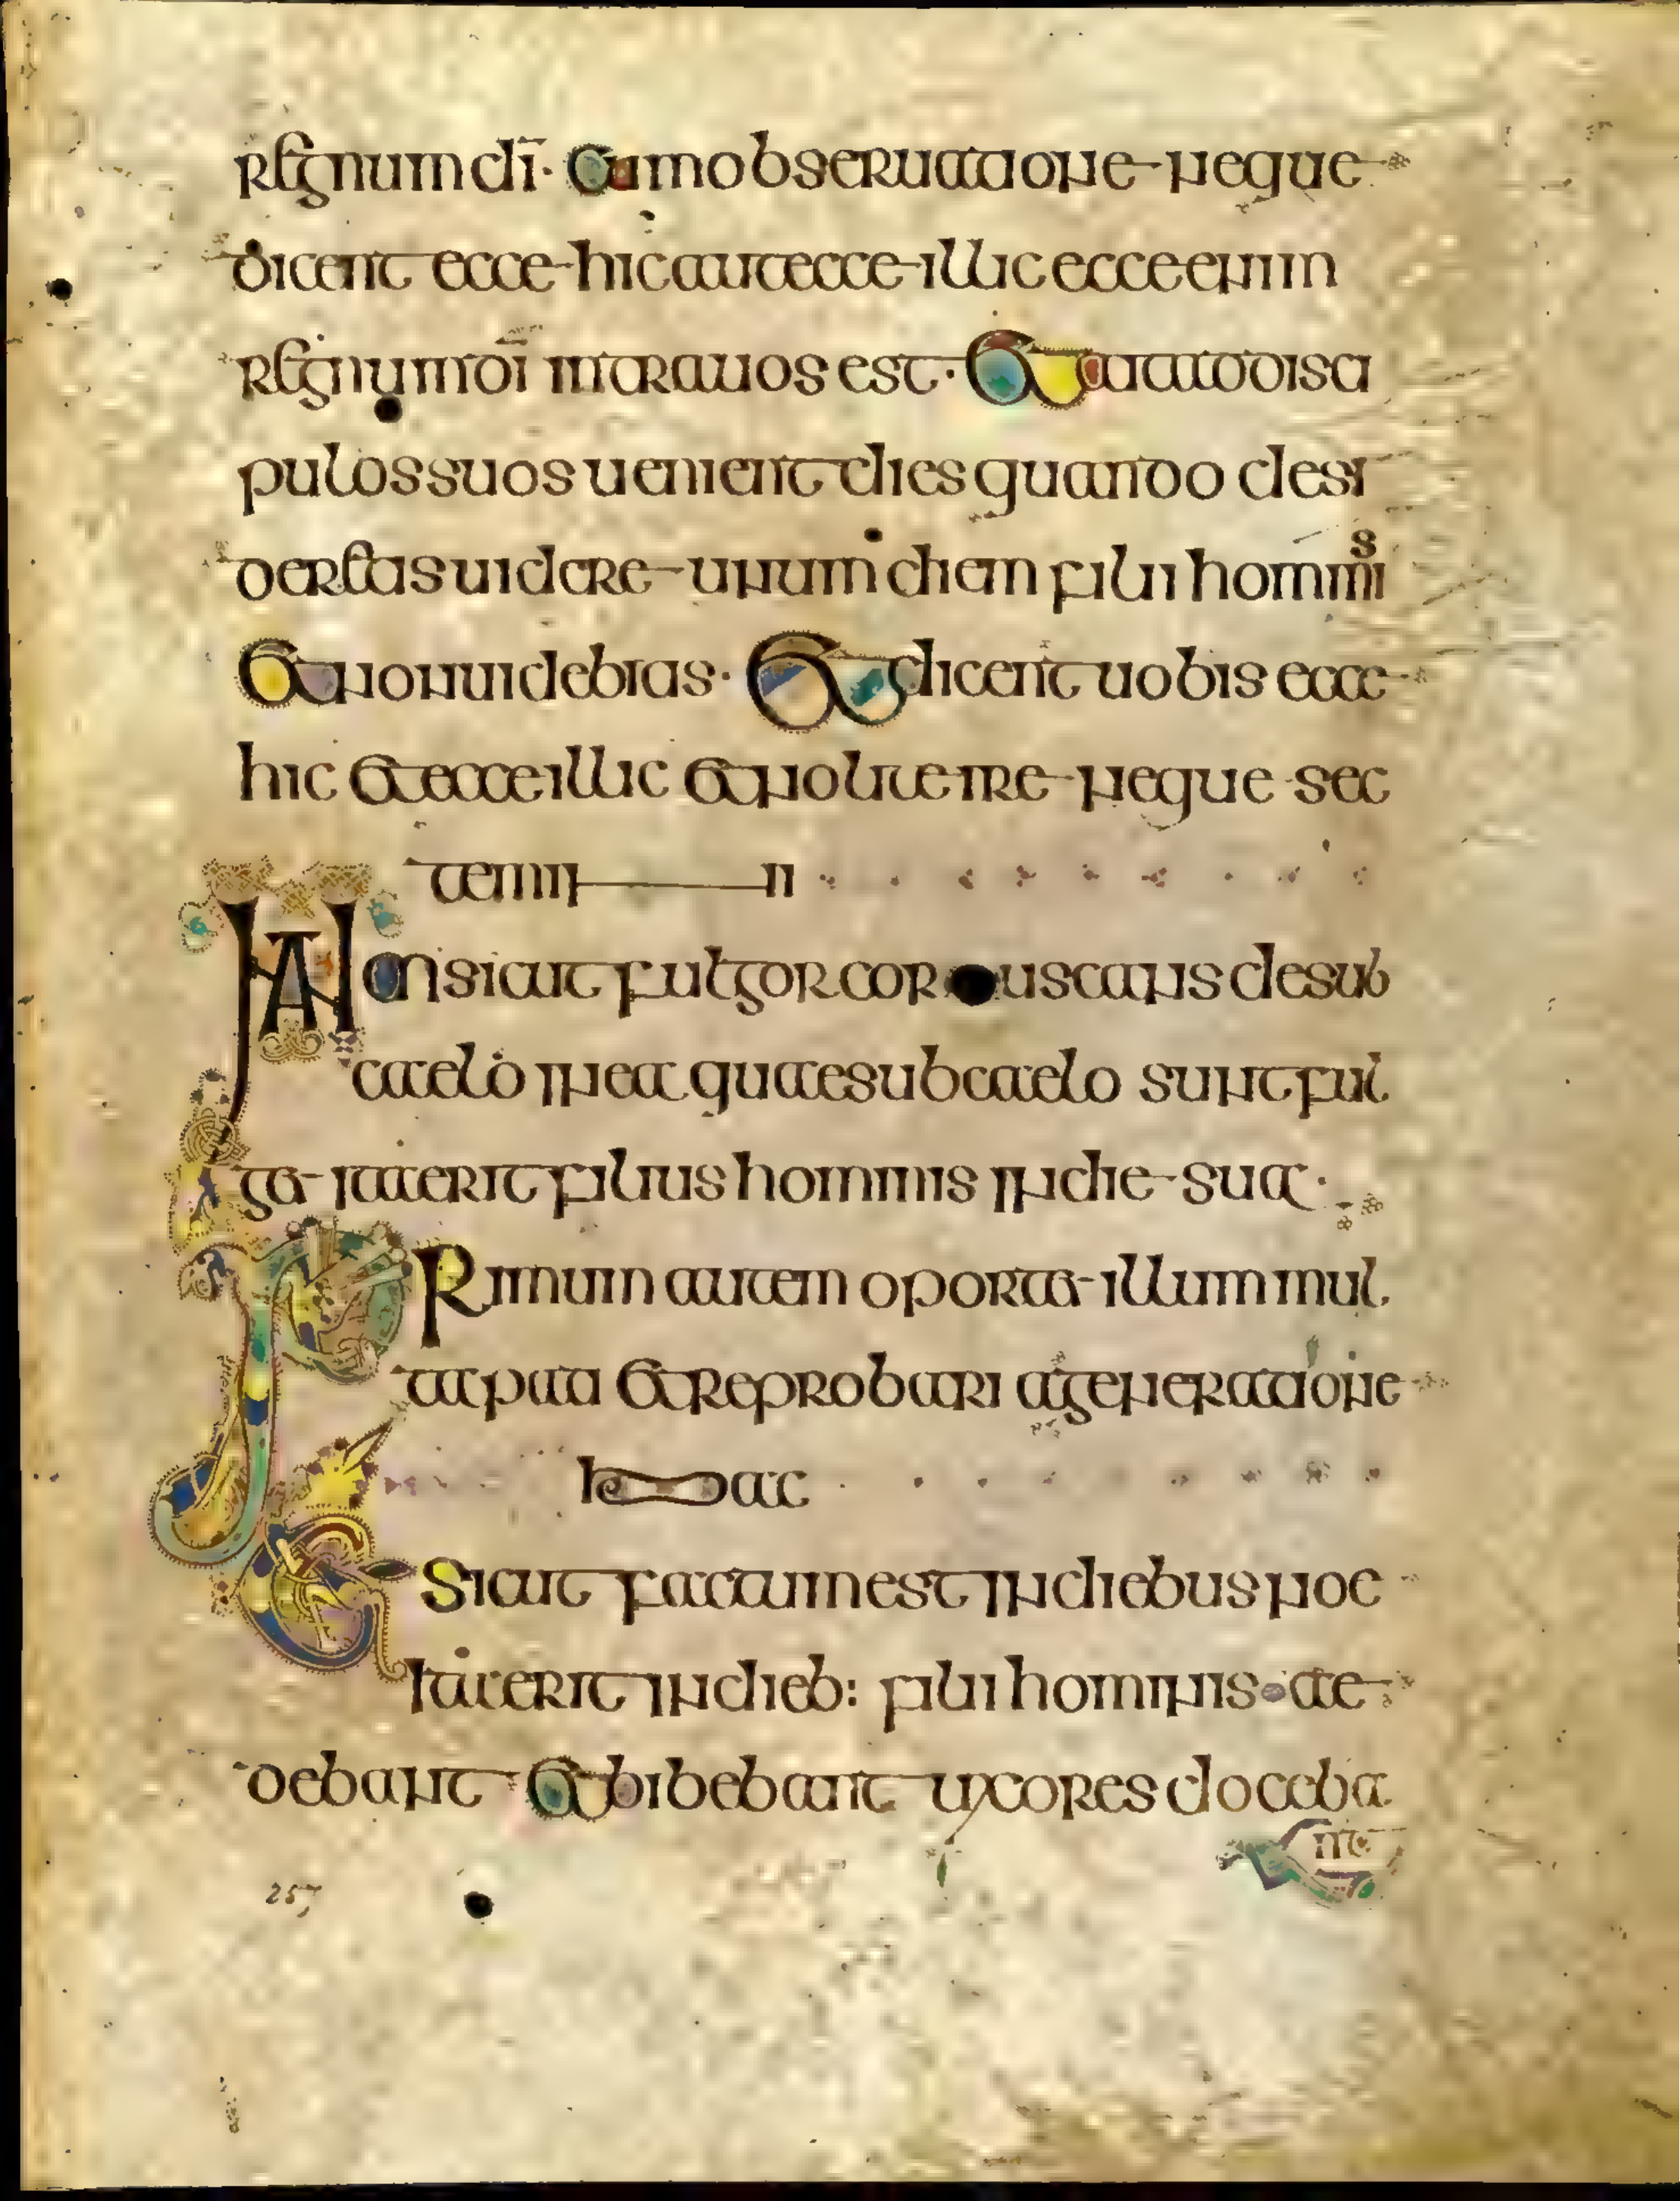 regnum dī · Cum obseruatione neque
dicent ecce hic aut ecce illic ecce enim
regnum dī intra uos est · Et ait ad disci
pulos suos uenient dies quando desi
deretis uidere unum diem filii hominis
et non uidebitis · Et dicent uobis ecce
hic et ecce illic et nolite ire neque sec
temin n
Nam sicut fulgor coruscans de sub
caelo in ea quae sub caelo sunt ful
get ita erit filius hominis in die sua ·
Primum autem oportet illum mul
ta pati et reprobari a generatione
hac
Et sicut factum est in diebus noe
ita erit in dieb: filii hominis · ae
debant et bibebant uxores doceba
nt
257